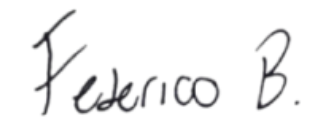 Federico B.